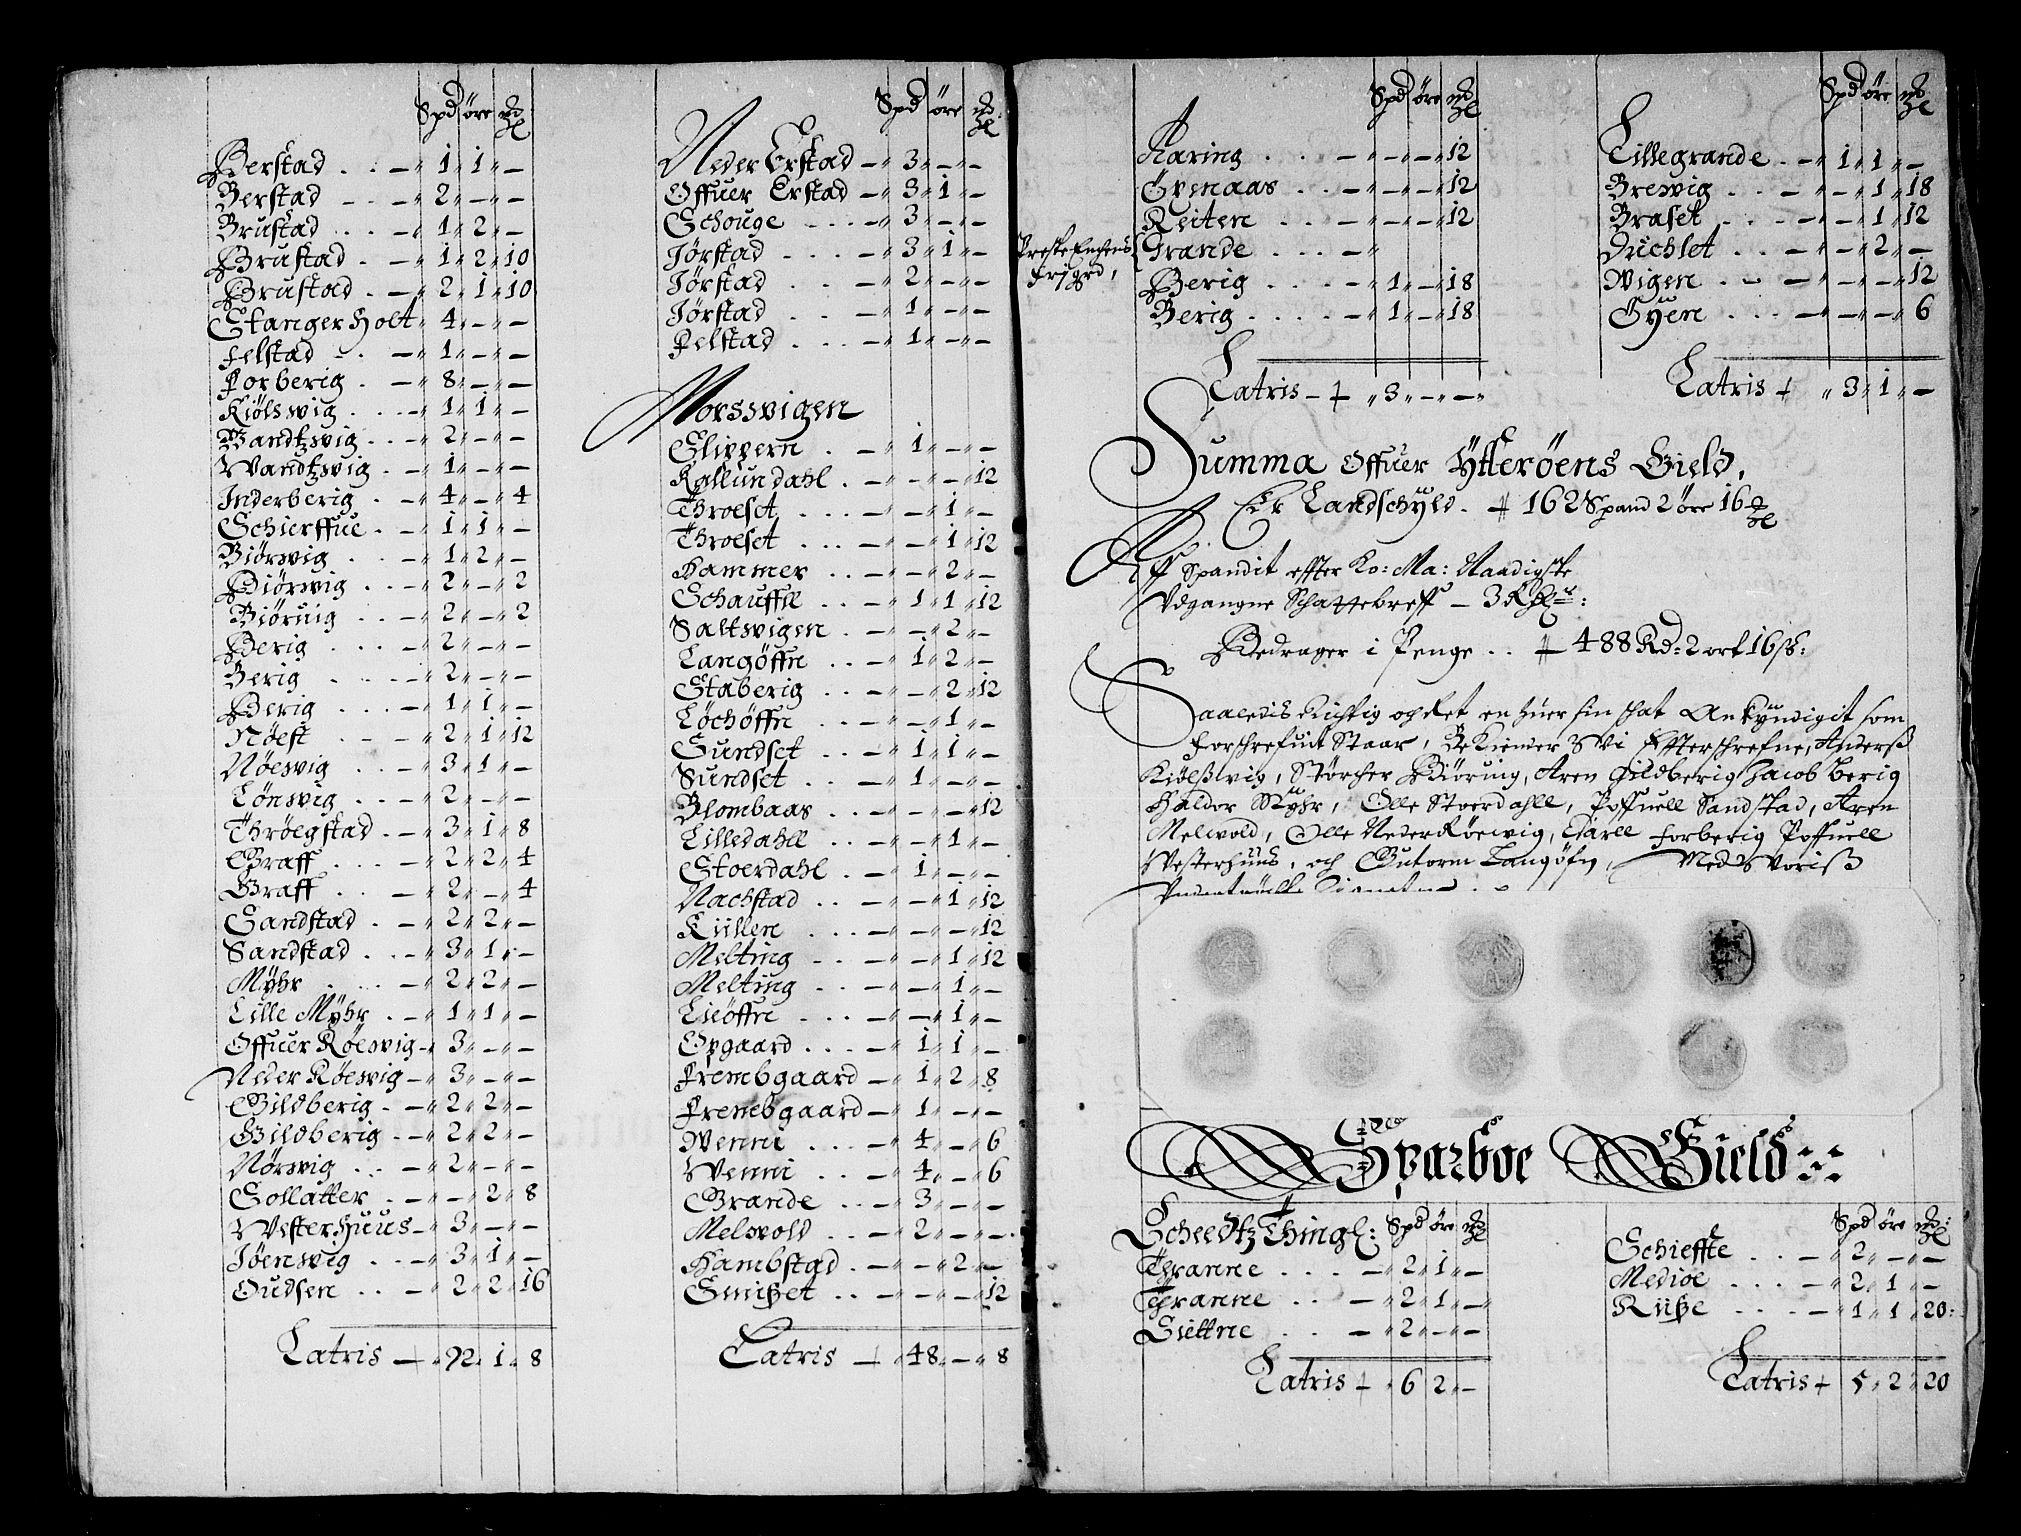 Spd öre
Berstad . . – " 1 " 1 " –
Berstad – . . – " 2 " – " –
Brustad . . – " 1 " 2 " –
Brustad . – " 1 " 2 " 10
Brustad . – " 2 " 1 " 10
Stanger Holt " 4 " – " –
Felstad – . – " 1 " – " –
Forberig . – " 8 " – " –
Kiölswig . . – " 1 " 1 " –
Bandtzvig . . – " 2 " – " –
Wandtzvig . – " 1 " – " –
Inderberig . – " 4 " – " 4
Schierffue . – " 1 " 1 " –
Biörswig . . – " 1 " 2 " –
Biörwig . . . – " 2 " – " 2
Biöruig . . . – " 2 " – " 2
Berig . . . – " 2 " – " –
Berig . . . – " 2 " – " –
Berig . . . – " 1 " 1 " –
Nöest – – – " 2 " 1 " 12
Nöesvig . . – " 3 " 1 " –
Lönsvig . . – " 2 " – " –
Thröegstad . – " 3 " 1 " 8
Graff . . . – " 2 " 2 " 4
Graff . . – " 2 " – " 4
Sandstad . – " 2 " 2 " –
Sandstad . . – " 3 " 1 " –
Myhr . . – " 2 " 2 " –
Lille Myhr . – " 1 " 1 " –
Offuer Röesvig – " 3 " – " –
Neder Röesvig – " 3 " – " –
Gildberig . – " 2 " 2 " –
Gildberig . . – " 2 " 2 " –
Nörsvig . . – " 2 " – " –
Sollatter . – " – " 2 " 8
Westerhuus – " 3 " – " –
Jöenswig . . – " 3 " 1 " –
Oudsen . . – " 2 " 2 " 16
Latris + " 92 " 1 " 8
Spd öre
Neder Erstad – " 3 " – " –
Offuer Erstad – " 3 " 1 " –
Schouge . . . – " 3 " – " –
Jörstad . . . – " 3 " 1 " –
Jörstad . . – " 2 " – " –
Jörstad . . – " 1 " – " –
Felstad . . . – " 1 " – " –
Morssvigen
Slippern . – " 1 " – " –
Kallundahl . – " – " – " 12
Throeset . . . – " – " 1 " –
Throeset . . . – " – " 1 " 12
Hammer . . – " – " 2 " –
Schauffll . . – " 1 " 1 " 12
Saltsvigen . – " – " 2 " –
Langöffn . . – " 1 " 2 " –
Staberig . . – " – " 2 " 12
Löchöffn . . – " – " 1 " –
Sundset . . – " 1 " 1 " –
Sundset . . – " 1 " – " –
Blombaas . . – " – " – " 12
Lilledahll . . – " – " 1 " –
Stoerdahl . – " 1 " – " –
Nachstad . . – " – " 1 " 12
Kuillen . . . – " – " – " 12
Melting – . – " – " 1 " 12
Melting . . – " – " 1 " –
Lieöffn . . . – " – " 1 " –
Opgaard . . . – " 1 " 1 " –
Frembgaard – " 1 " 2 " 8
Frembgaard – " 1 " – " –
Wenni . . . – " 4 " – " 6
Wenni . . . – " 4 " – " 6
Grande . . – " 3 " – " –
Melsvold . . – " 2 " – " –
Hambstad . – " – " 2 " –
Smißet . . – " – " – " 12
Latris + " 48 " – " 8
Spd öre
Karing . . . – " – " – " 12
Öpenaas . . – " – " – " 12
Reiten . . . – " – " – " 12
Grande . . . – "
frijgrd,
Berig . . . . – " 1 " – " 18
Berig . . . . – " 1 " – " 18
Latris – + " 3 " – " – "
Spd öre
Lillegrande . – " 1 " 1 " –
Brewig . . . – " – " 1 " 18
Braset . . . – " – " 1 " 12
Duchlet . . – " – " 2 " –
Wigen . . – " – " – " 12
Öyen . . . – " – " – " 6
Latris + " 3 " 1 " –
Summa Offuer Ytteröens Gield,
Er Landschyld . + 162 Spand 2 öre 16
Aff Spandit effter Ko: Ma: Naadigste
Udgangne Schattebreff – 3 R
Bedrager i Penge . . + 488 Rd: 2 ort 16 s:
Saaledis Richtig och Ret en huer sin schat Ankyndigit som
forschrefuit Staar, Bekiemer Wi Effterschrefne, Anderß
Kiöelßvig, Störcher Biöring, Aren Gildberig Jacob Berig
Haldor Myhr, Olle Stoerdahll, Poffuell Sandstad, Aren
Melwold, Olle Neder Röewig, Carll Forberig Poffuell
Westerhuus, och Gutorm Langöfn, Med Voriß
Sparboe Gield
Scheedtz Thingl: Spd öre
Thranne . . . – " 2 " 1 " –
Thranne . . – " 2 " 1 " –
Siettne . . – " 2 " – " –
Latris + " 6 2 " –
Spd öre
Schieffte . . – " 2 " – " –
Medioe . . . – " 2 " 1 " –
Riiße . . . – " 1 " 1 " 20
Latris + 5 " 2 " 20